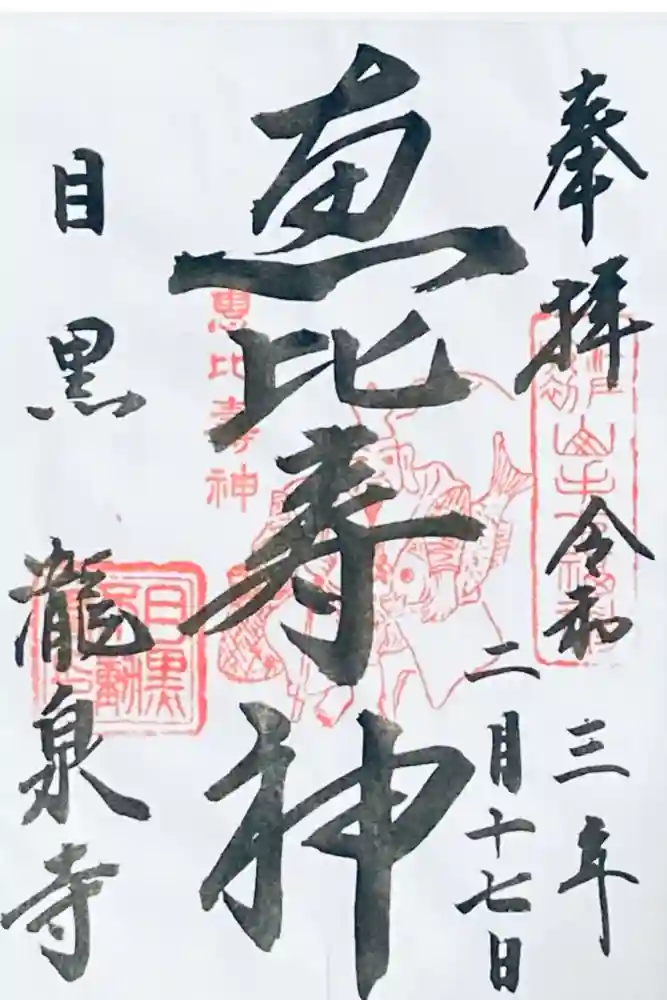 奉拝
令和三年
二月十七日
恵比寿神
恵比寿神
目黒
瀧泉寺